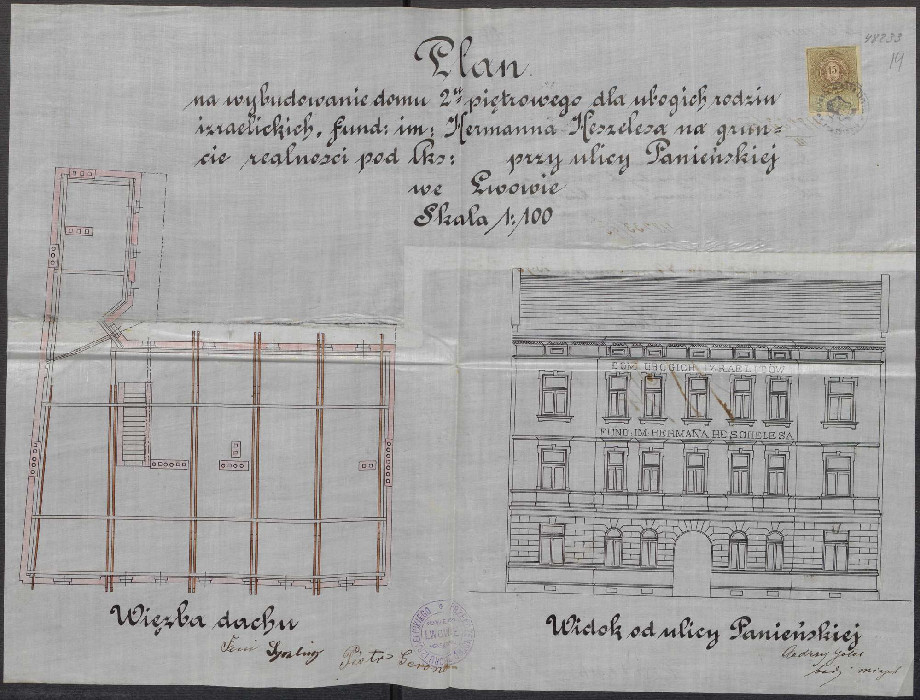 Plan
na wybudowanie domu 2u piętrowego dla ubogich rodzin
izraelickich, fund: im: Hermanna Heszelesa na grun-
cie realności pod lks: przy ulicy Panieńskiej
we Lwowie
Skala 1:100
48233
19
15
DOM UBOGICH IZRAELITÓW
FUND. IM. HERMANA HESCHELESA
Więzba dachu
Widok od ulicy Panieńskiej
Piotr
LWOWIE